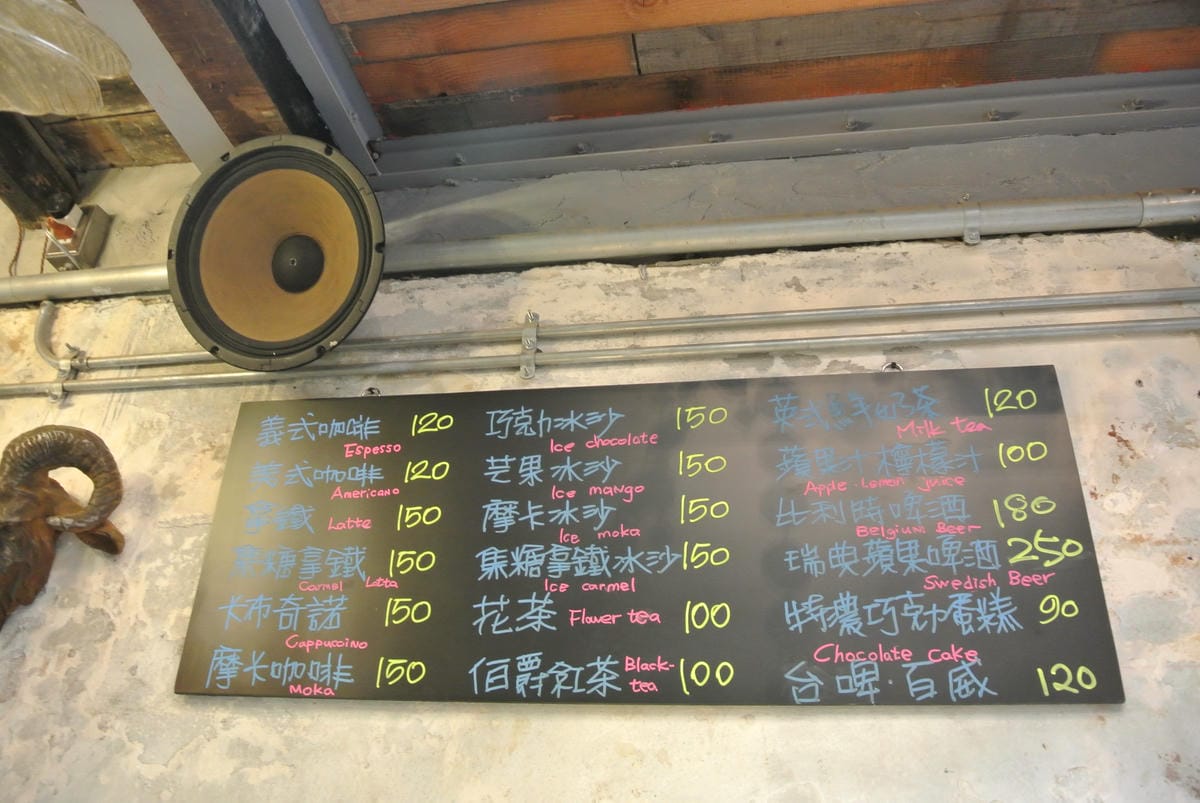 義式咖啡 120
Espesso
美式咖啡 120
Americano
拿鐵 Latte 150
焦糖拿鐵 150
Carmel Latta
卡布奇諾 150
Cappuccino
摩卡咖啡 150
Moka
巧克力冰沙 150
Ice chocolate
芒果冰沙 150
Ice mango
摩卡冰沙 150
Ice moka
焦糖拿鐵冰沙 150
Ice carmel
花茶 Flower tea 100
伯爵紅茶 Black-tea 100
英式鮮奶茶 120
Milk tea
蘋果汁.檸檬汁 100
Apple.Lemon juice
比利時啤酒 180
Belgium Beer
瑞典蘋果啤酒 250
Swedish Beer
特濃巧克力蛋糕 90
Chocolate cake
台啤.百威 120